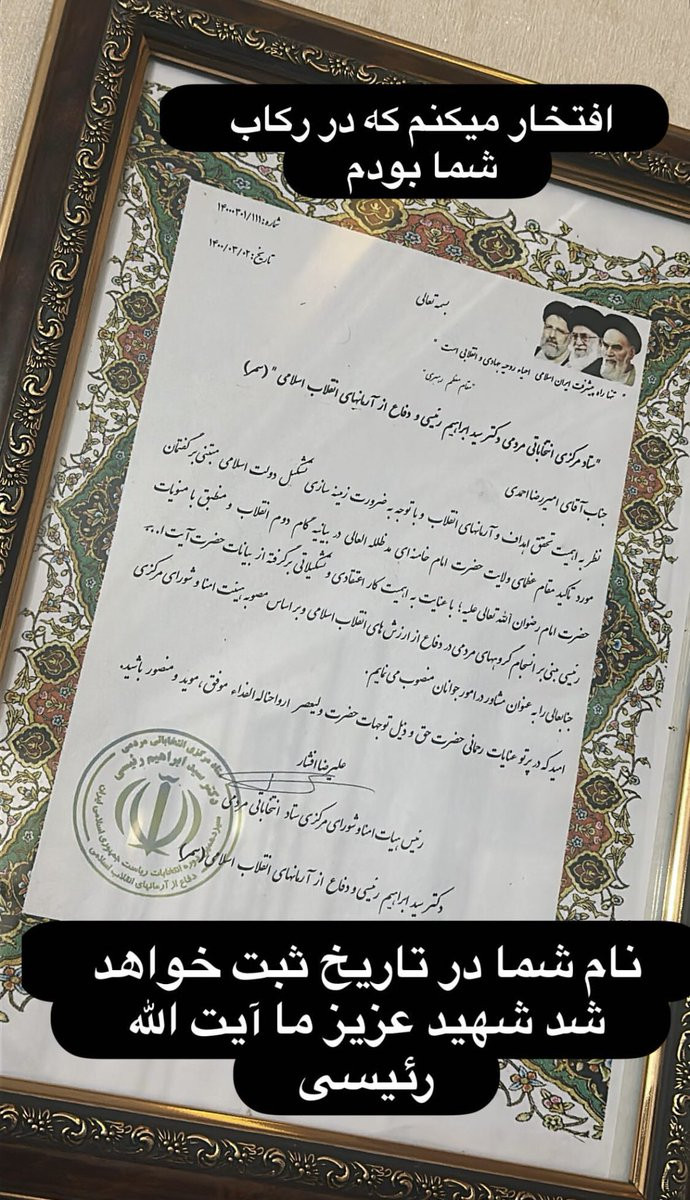 افتخار میکنم که در رکاب
شما بودم
شماره: ۱۴۰۰۰۳۰۱/۱۱۱
تاریخ: ۱۴۰۰/۰۳/۰۲
بسمه تعالی
" تنها راه پیشرفت ایران اسلامی احیاء روحیه جهادی و انقلابی است "
"مقام معظم رهبری"
"ستاد مرکزی انتخاباتی مردمی دکتر سید ابراهیم رئیسی و دفاع از آرمانهای انقلاب اسلامی" (سمر)
جناب آقای امیررضا احمدی
نظر به اهمیت تحقق اهداف و آرمانهای انقلاب و با توجه به ضرورت زمینه سازی تشکیل دولت اسلامی مبتنی بر گفتمان
مورد تاکید مقام عظمای ولایت حضرت امام خامنه ای مدظله العالی در بیانیه گام دوم انقلاب و منطبق با منویات
حضرت امام رضوان الله تعالی علیه؛ با عنایت به اهمیت کار اعتقادی و تشکیلاتی برگرفته از بیانات حضرت آیت ا...
رئیسی مبنی بر انسجام گروههای مردمی در دفاع از ارزش های انقلاب اسلامی و بر اساس مصوبه هیئت امنا و شورای مرکزی
جنابعالی را به عنوان مشاور در امور جوانان منصوب می نمایم.
امید که در پرتو عنایات رحمانی حضرت حق و ذیل توجهات حضرت ولیعصر ارواحناله الفداء موفق، موید و منصور باشید.
علیرضا افشار
رئیس هیات امنا و شورای مرکزی ستاد انتخاباتی مردمی
دکتر سید ابراهیم رئیسی و دفاع از آرمانهای انقلاب اسلامی (سمر)
ستاد مرکزی انتخاباتی مردمی
دکتر سید ابراهیم رئیسی
دوره انتخابات ریاست جمهوری اسلامی ایران
دفاع از آرمانهای انقلاب اسلامی
نام شما در تاریخ ثبت خواهد
شد شهید عزیز ما آیت الله
رئیسی